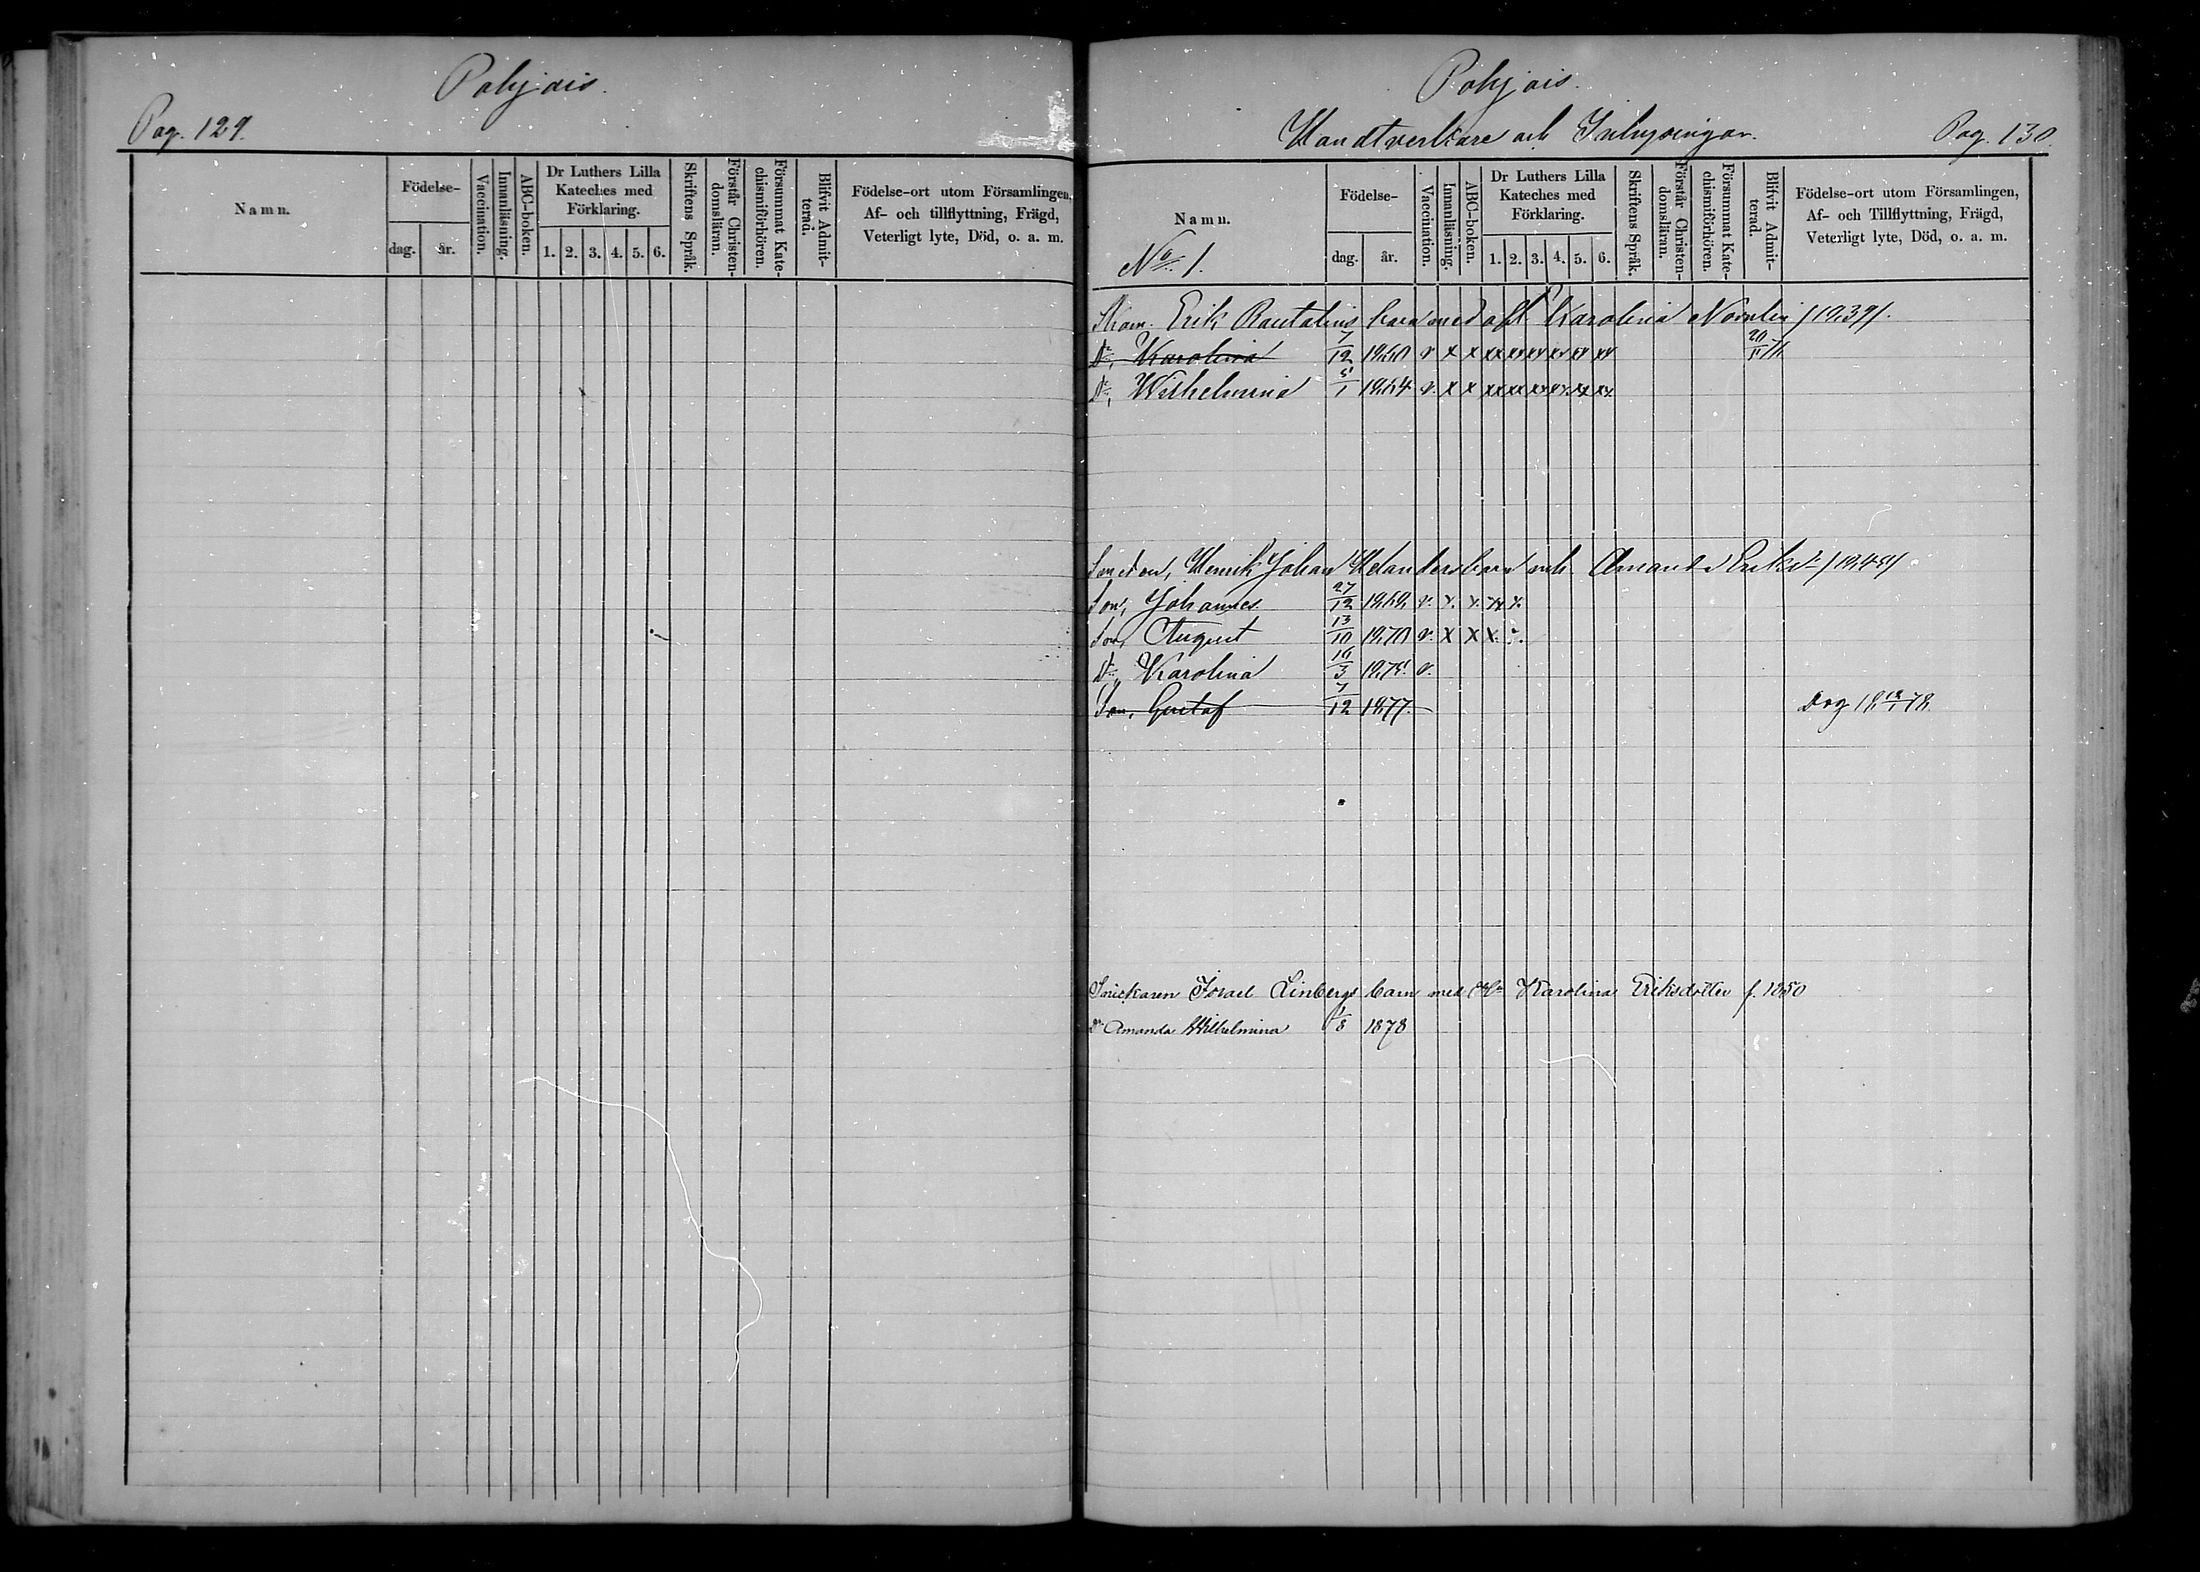 Pohjois.
Pag. 129.
Namn.
Födelse-
dag.
år.
Vaccination.
Innanläsning.
ABC-boken.
Dr Luthers Lilla
Kateches med
Förklaring.
1. 2. 3. 4. 5. 6.
Skriftens Språk.
Förstår Christen-
domsläran.
Försummat Kate-
chismiförhören.
Blifvit Admit-
terad.
Födelse-ort utom Församlingen,
Af- och tillflyttning, Frägd,
Veterligt lyte, Död, o. a. m.
Pohjois.
Handtverkare och Inhysingar.
Pag. 130.
Namn.
No 1.
Födelse-
dag.
år.
Vaccination.
Innanläsning.
ABC-boken.
Dr Luthers Lilla
Kateches med
Förklaring.
1. 2. 3. 4. 5. 6.
Skriftens Språk.
Förstår Christen-
domsläran.
Försummat Kate-
chismiförhören.
Blifvit Admit-
terad.
Födelse-ort utom Församlingen,
Af- och Tillflyttning, Frägd,
Veterligt lyte, Död, o. a. m.
Erik Rautalins barn med Karolina 1839
Dr, Karolina 7/12 1860 v x x xx xx xx xx xx xx
Dr, Wilhelmina 5/1 1864 v. x x xx xx xx xx xx xx
Henrik Johan Helanders barn m h Amanda
Son, Johannes 27/12 1868 v. x. x. xx x.
Son, August 13/10 1870 v. x x x
Dr, Karolina 16/3 1875 v.
Son, Gustaf 7/12 1877. Dog
Snickaren Israel Linbergs barn med Karolina Eriksdotter f. 1850
Dr Amanda Wilhelmina 1/8 1878